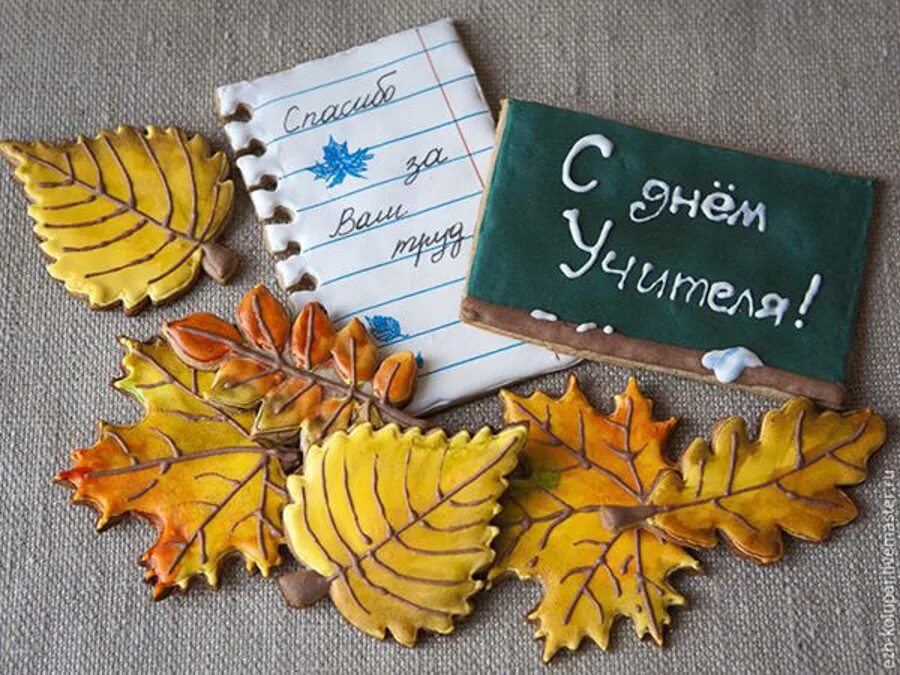 Спасибо
за
Ваш
труд
С днём
Учителя!
ezh-kolupar.livemaster.ru